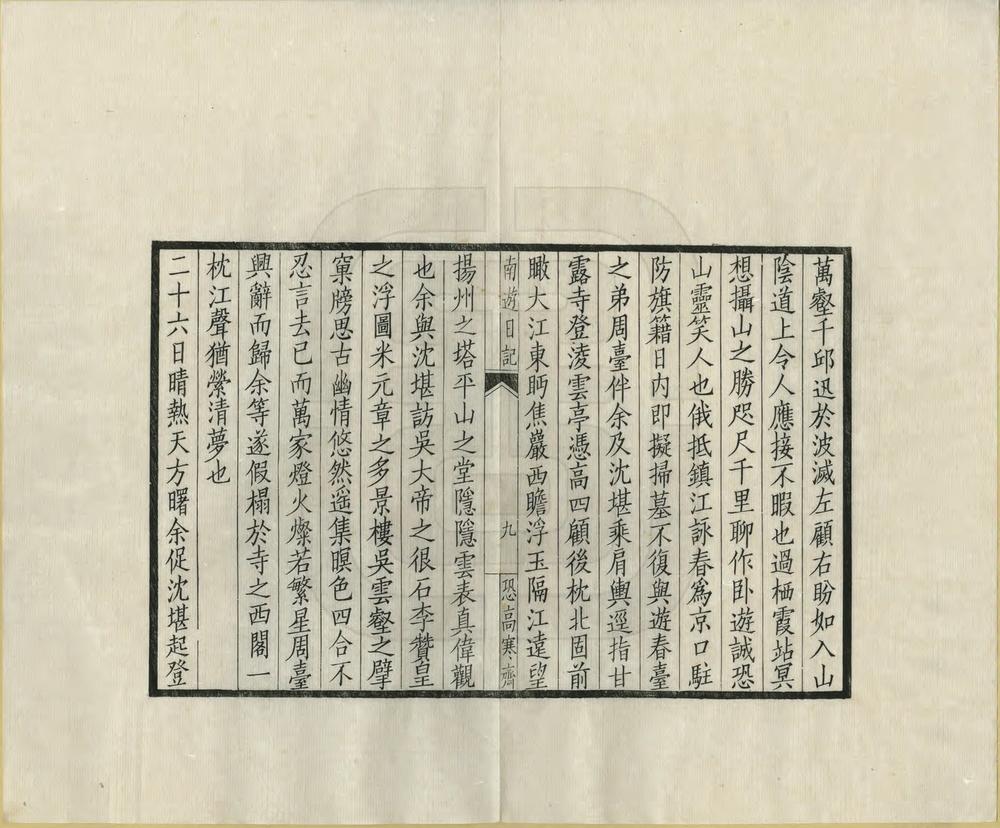 萬壑千邱迅於波滅左顧右盼如入山
陰道上令人應接不暇也過栖霞站冥
想攝山之勝咫尺千里聊作卧遊誠恐
山靈笑人也俄抵鎮江詠春爲京口駐
防旗籍日内即擬掃墓不復與遊春臺
之弟周臺伴余及沈堪乘肩輿逕指甘
露寺登淩雲亭憑高四顧後枕北固前
瞰大江東眄焦巖西瞻浮玉隔江遠望
南遊日記
九
恐高寒齋
揚州之塔平山之堂隱隱雲表真偉觀
也余與沈堪訪吳大帝之很石李贊皇
之浮圖米元章之多景樓吳雲壑之擘
窠牓思古幽情悠然遥集暝色四合不
忍言去已而萬家燈火燦若繁星周臺
興辭而歸余等遂假榻於寺之西閣一
枕江聲猶縈清夢也
二十六日晴熱天方曙余促沈堪起登